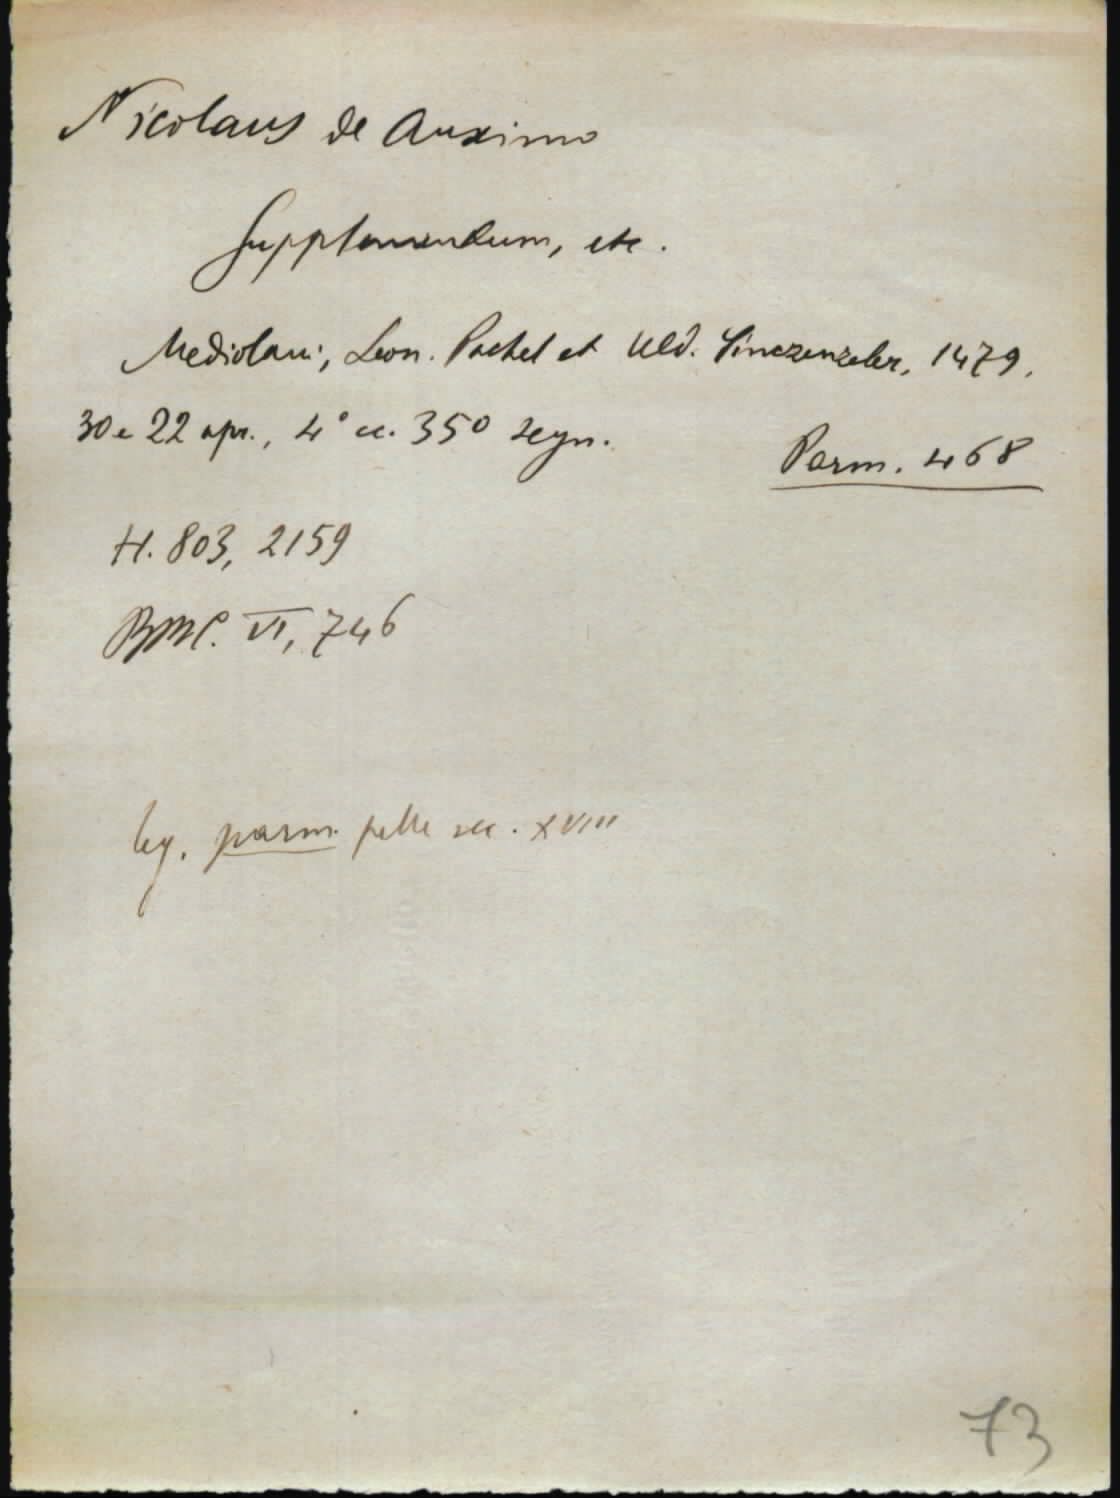 Nicolaus de Auximo
Supplementum, etc.
Mediolani, Leon. Pachel et Uld. Sinczenzeler, 1479,
30 e 22 apr., 4° cc. 350 segn.
Parm. 468
H. 803, 2159
BMC. VI, 746
leg. parm. pelle sec. XVIII
73